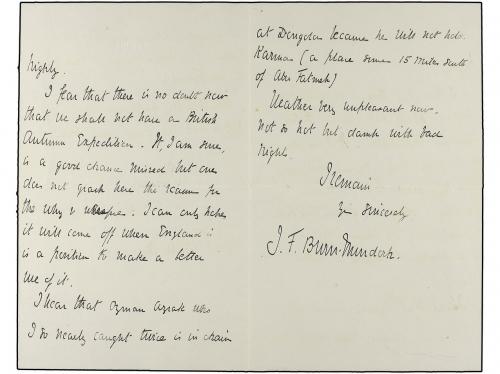 highly.
I fear that there is no doubt now
that we shall not have a British
Autumn Expedition. It, I am sure,
is a good chance missed but one
does not grasp here the reason for
the why & wherefore. I can only hope
it will come off when England is
in a position to make a better
use of it.
I hear that Osman Azrak who
I so nearly caught twice is in chains
at Dongola because he will not hold
Karman (a place some 15 miles south
of Abu Fatmeh)
Weather very unpleasant now.
Not so hot but damp with bad
nights.
I remain
Yrs Sincerely
J. F. Burn-Murdoch.